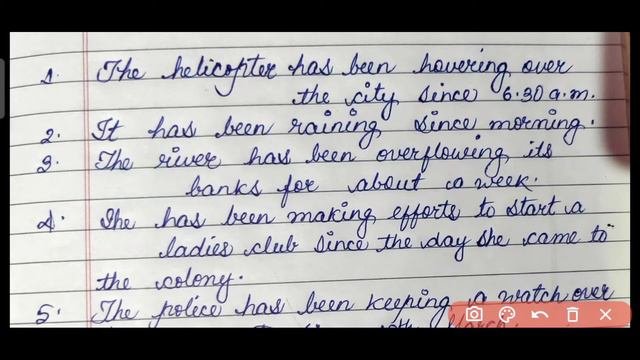 1. The helicopter has been hovering over
the city since 6.30 a.m.
2. It has been raining since morning.
3. The river has been overflowing its
banks for about a week.
4. She has been making efforts to start a
ladies club since the day she came to
the colony.
5. The police has been keeping a watch over
March